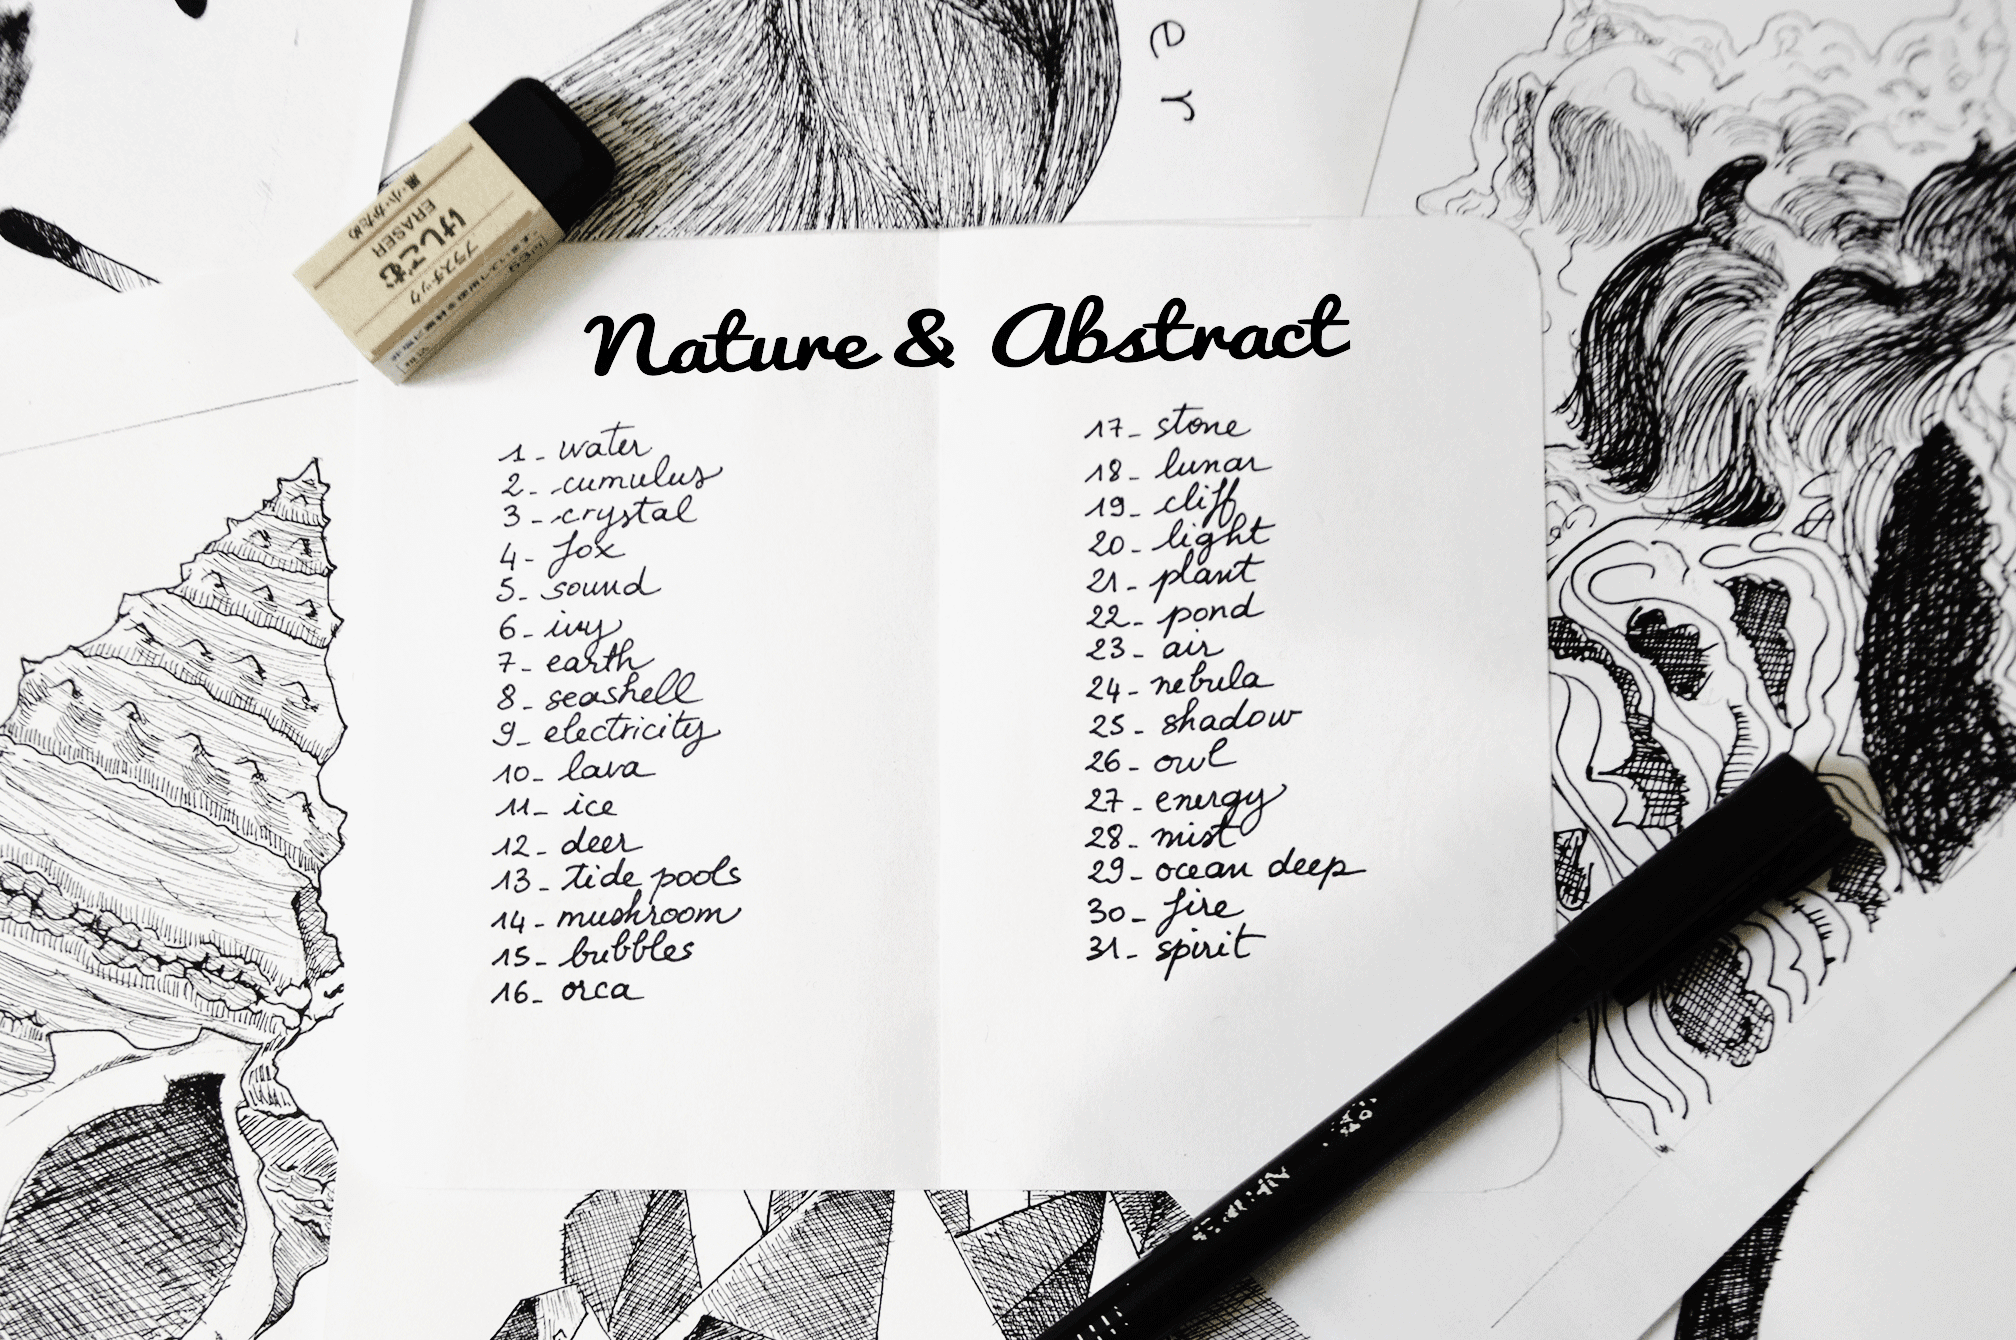 er
黒・小・かため
ERASER
けしごむ
プラスチック
Nature & Abstract
1- water
2- cumulus
3- crystal
4- fox
5- sound
6- ivy
7- earth
8- seashell
9- electricity
10- lava
11- ice
12- deer
13- tide pools
14- mushroom
15- bubbles
16- orca
17- stone
18- lunar
19- cliff
20- light
21- plant
22- pond
23- air
24- nebula
25- shadow
26- owl
27- energy
28- mist
29- ocean deep
30- fire
31- spirit